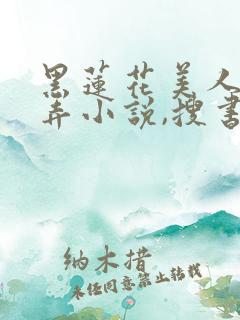 黑莲花美人
弄小说,搜书
纳木措
未经同意禁止转载